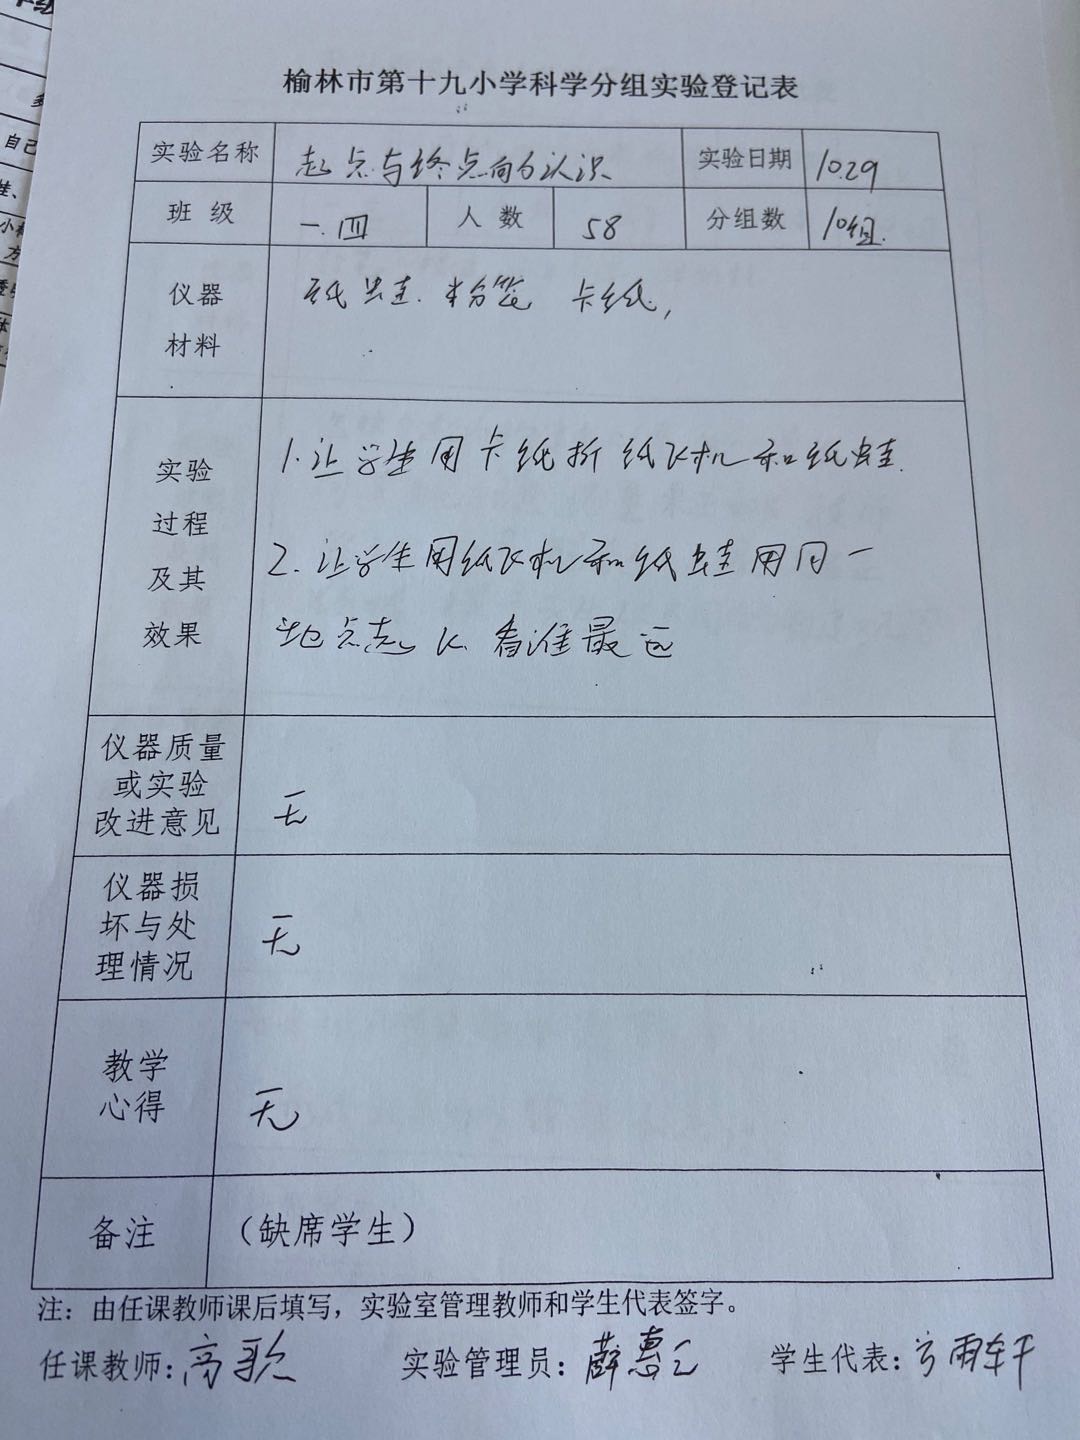 榆林市第十九小学科学分组实验登记表
实验名称 起点与终点的认识 实验日期 10.29
班级 一.四 人数 58 分组数 10组.
仪器材料 纸蛙. 粉笔 卡纸,
实验过程及其效果
1.让学生用卡纸折纸飞机和纸蛙.
2.让学生用纸飞机和纸蛙用同一
地点起飞 看谁最远
仪器质量或实验改进意见 无
仪器损坏与处理情况 无
教学心得 无
备注 (缺席学生)
注:由任课教师课后填写,实验室管理教师和学生代表签字。
任课教师:高歌 实验管理员:薛惠 学生代表:雨轩